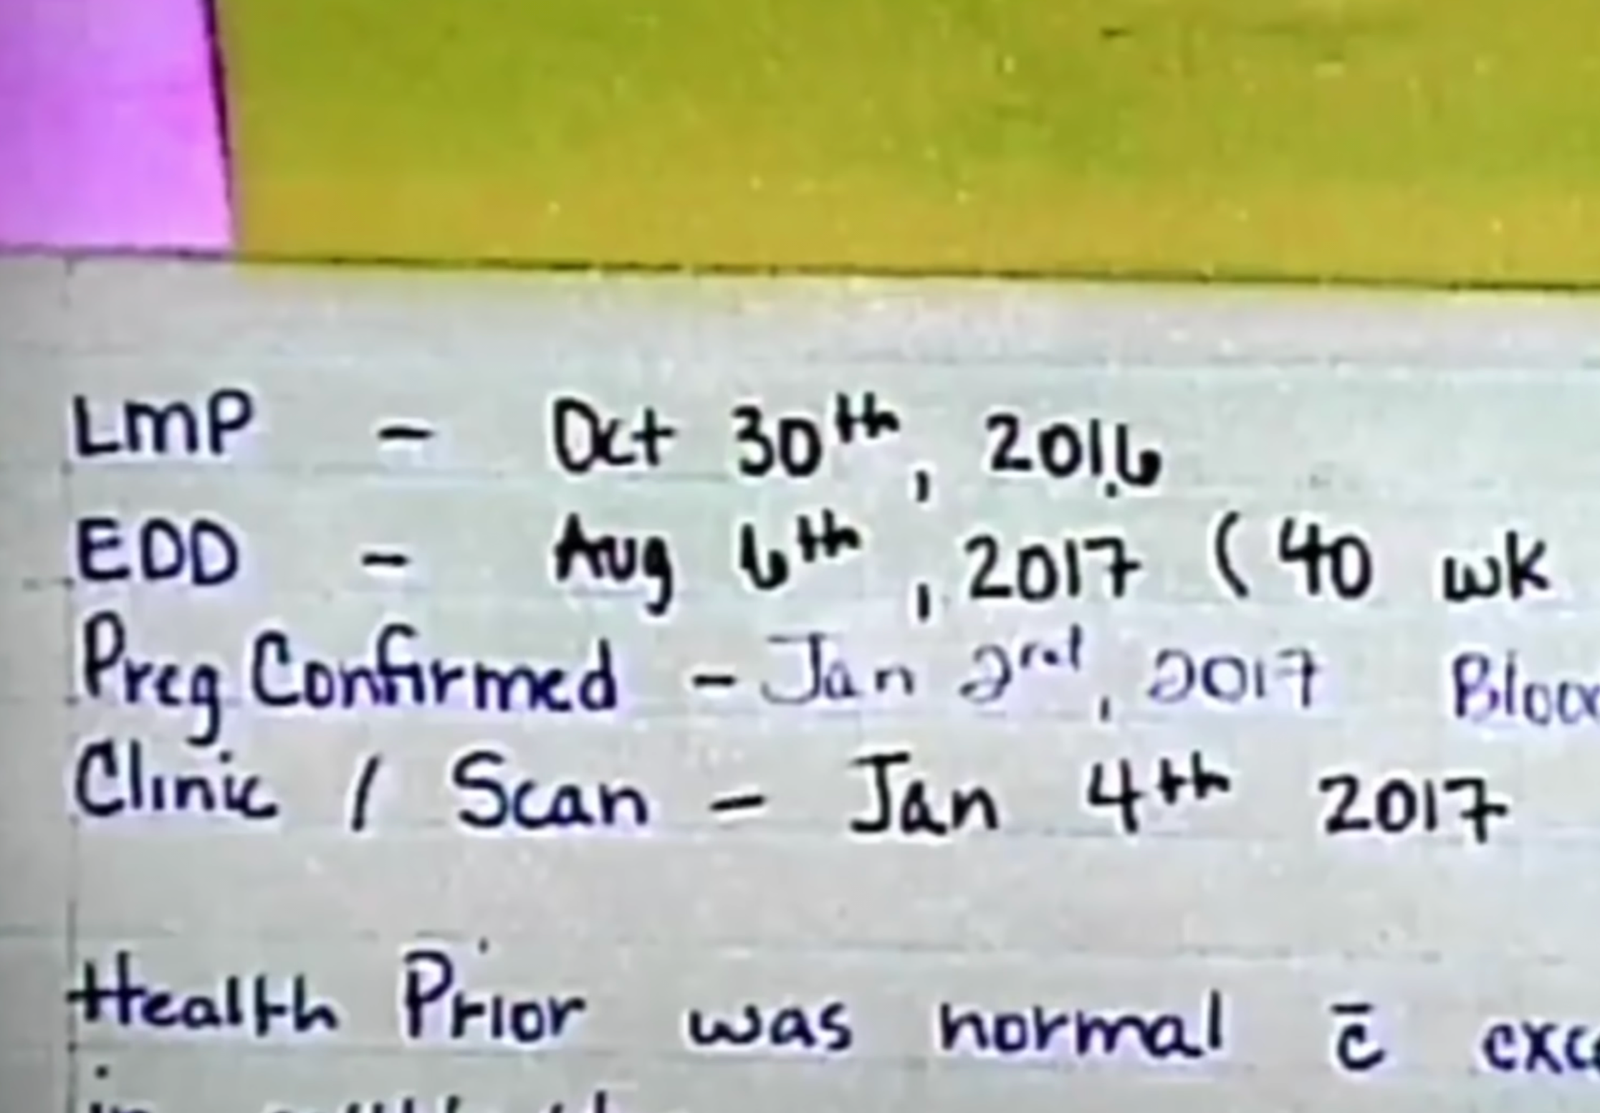 LMP - Oct 30th, 2016
EDD - Aug 6th, 2017 (40 wk
Preg Confirmed - Jan 2nd, 2017
Clinic / Scan - Jan 4th 2017
Health Prior was normal c̄